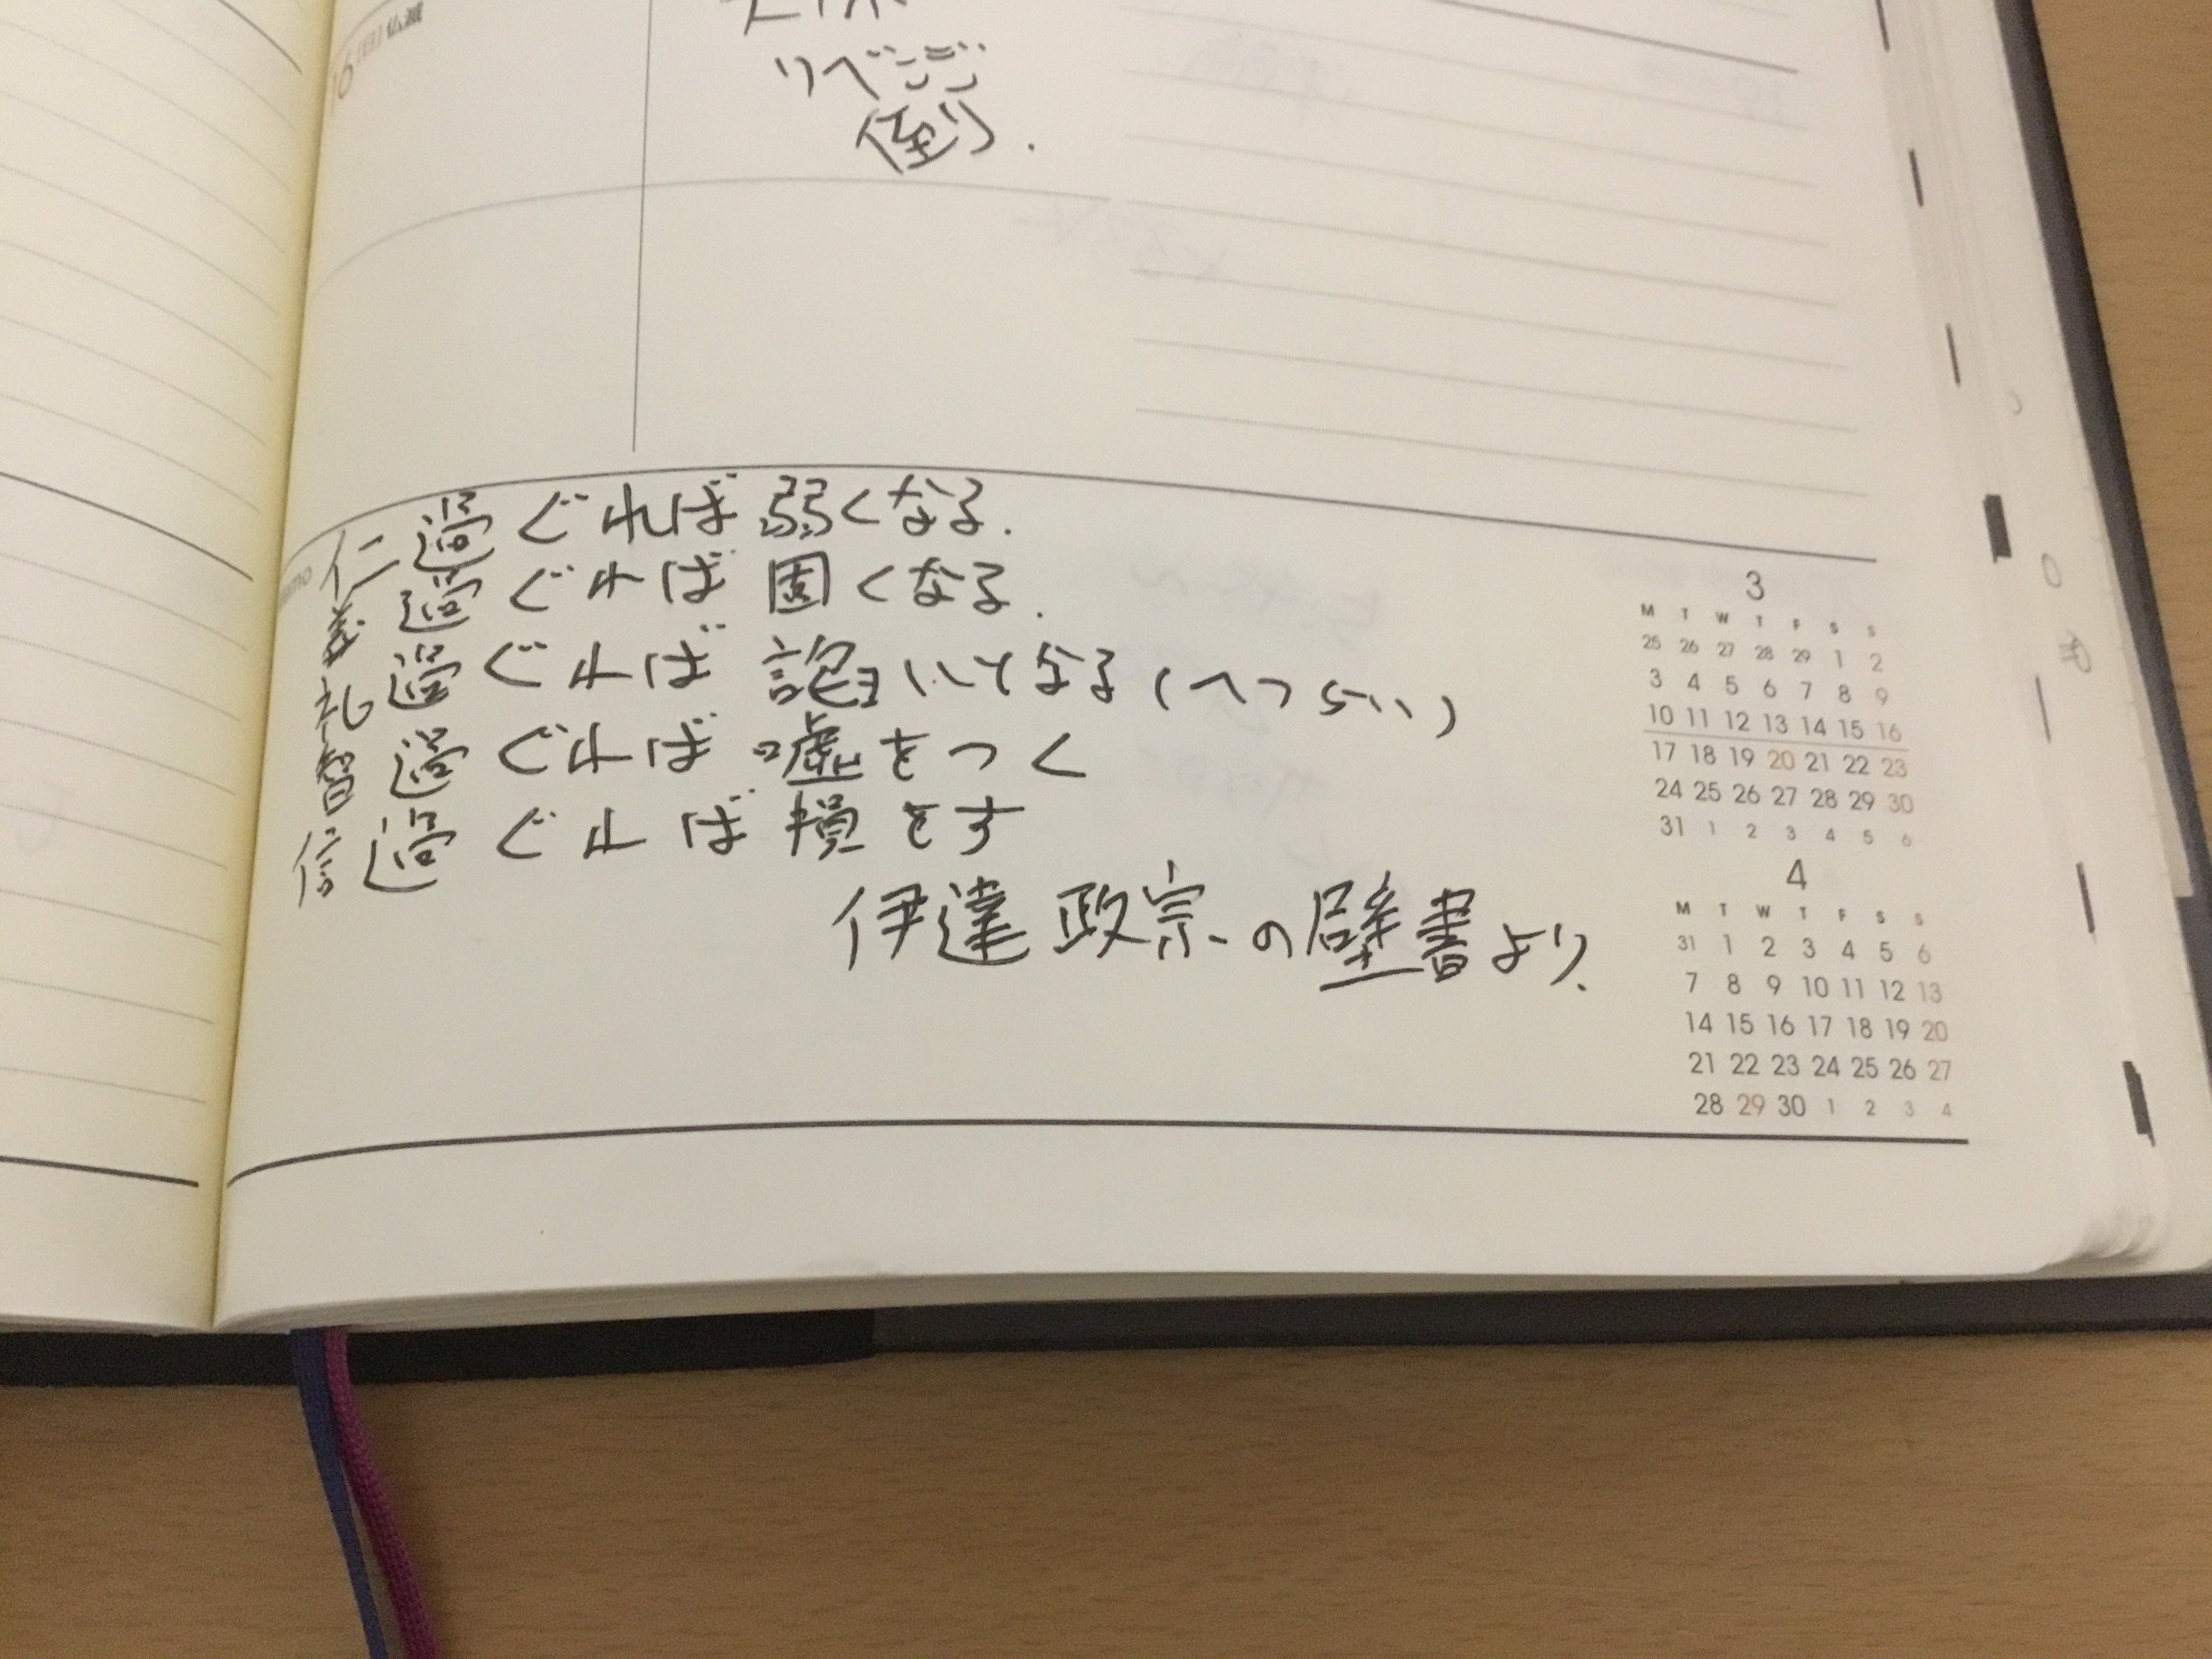 16 (日) 仏滅
リベンジ
倒り.
memo
仁過ぐれば弱くなる.
義過ぐれば固くなる.
礼過ぐれば諂いとなる(へつらい)
智過ぐれば嘘をつく
信過ぐれば損をす
伊達政宗の壁書より.
3
M T W T F S S
25 26 27 28 29 1 2
3 4 5 6 7 8 9
10 11 12 13 14 15 16
17 18 19 20 21 22 23
24 25 26 27 28 29 30
31 1 2 3 4 5 6
4
M T W T F S S
31 1 2 3 4 5 6
7 8 9 10 11 12 13
14 15 16 17 18 19 20
21 22 23 24 25 26 27
28 29 30 1 2 3 4